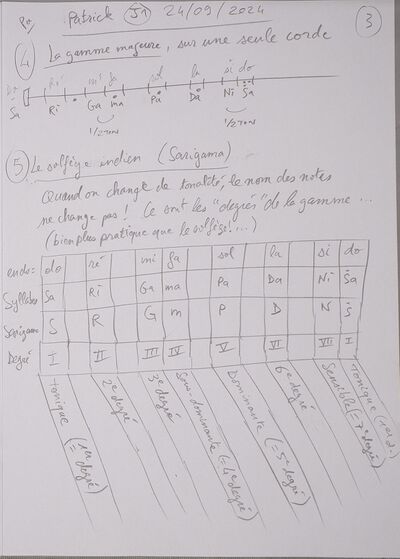 Patrick J1 24/09/2024
3
4 La gamme majeure, sur une seule corde
Do Ré mi fa sol la si do
Sa Ri Ga ma Pa Da Ni Sa
1/2 TON 1/2 TON
5 Le solfège indien (Sarigama)
Quand on change de tonalité, le nom des notes
ne change pas ! Ce sont les "degrés" de la gamme ...
(bien plus pratique que le solfège !...)
do ré mi fa sol la si do
Syllabes Sa Ri Ga ma Pa Da Ni Sa
Sarigama S R G m P D N S
Degré I II III IV V VI VII I
Tonique (= 1er degré)
2e degré
3e degré
Sous-dominante (= 4e degré)
Dominante (= 5e degré)
6e degré
Sensible (= 7e degré)
Tonique (1er d.